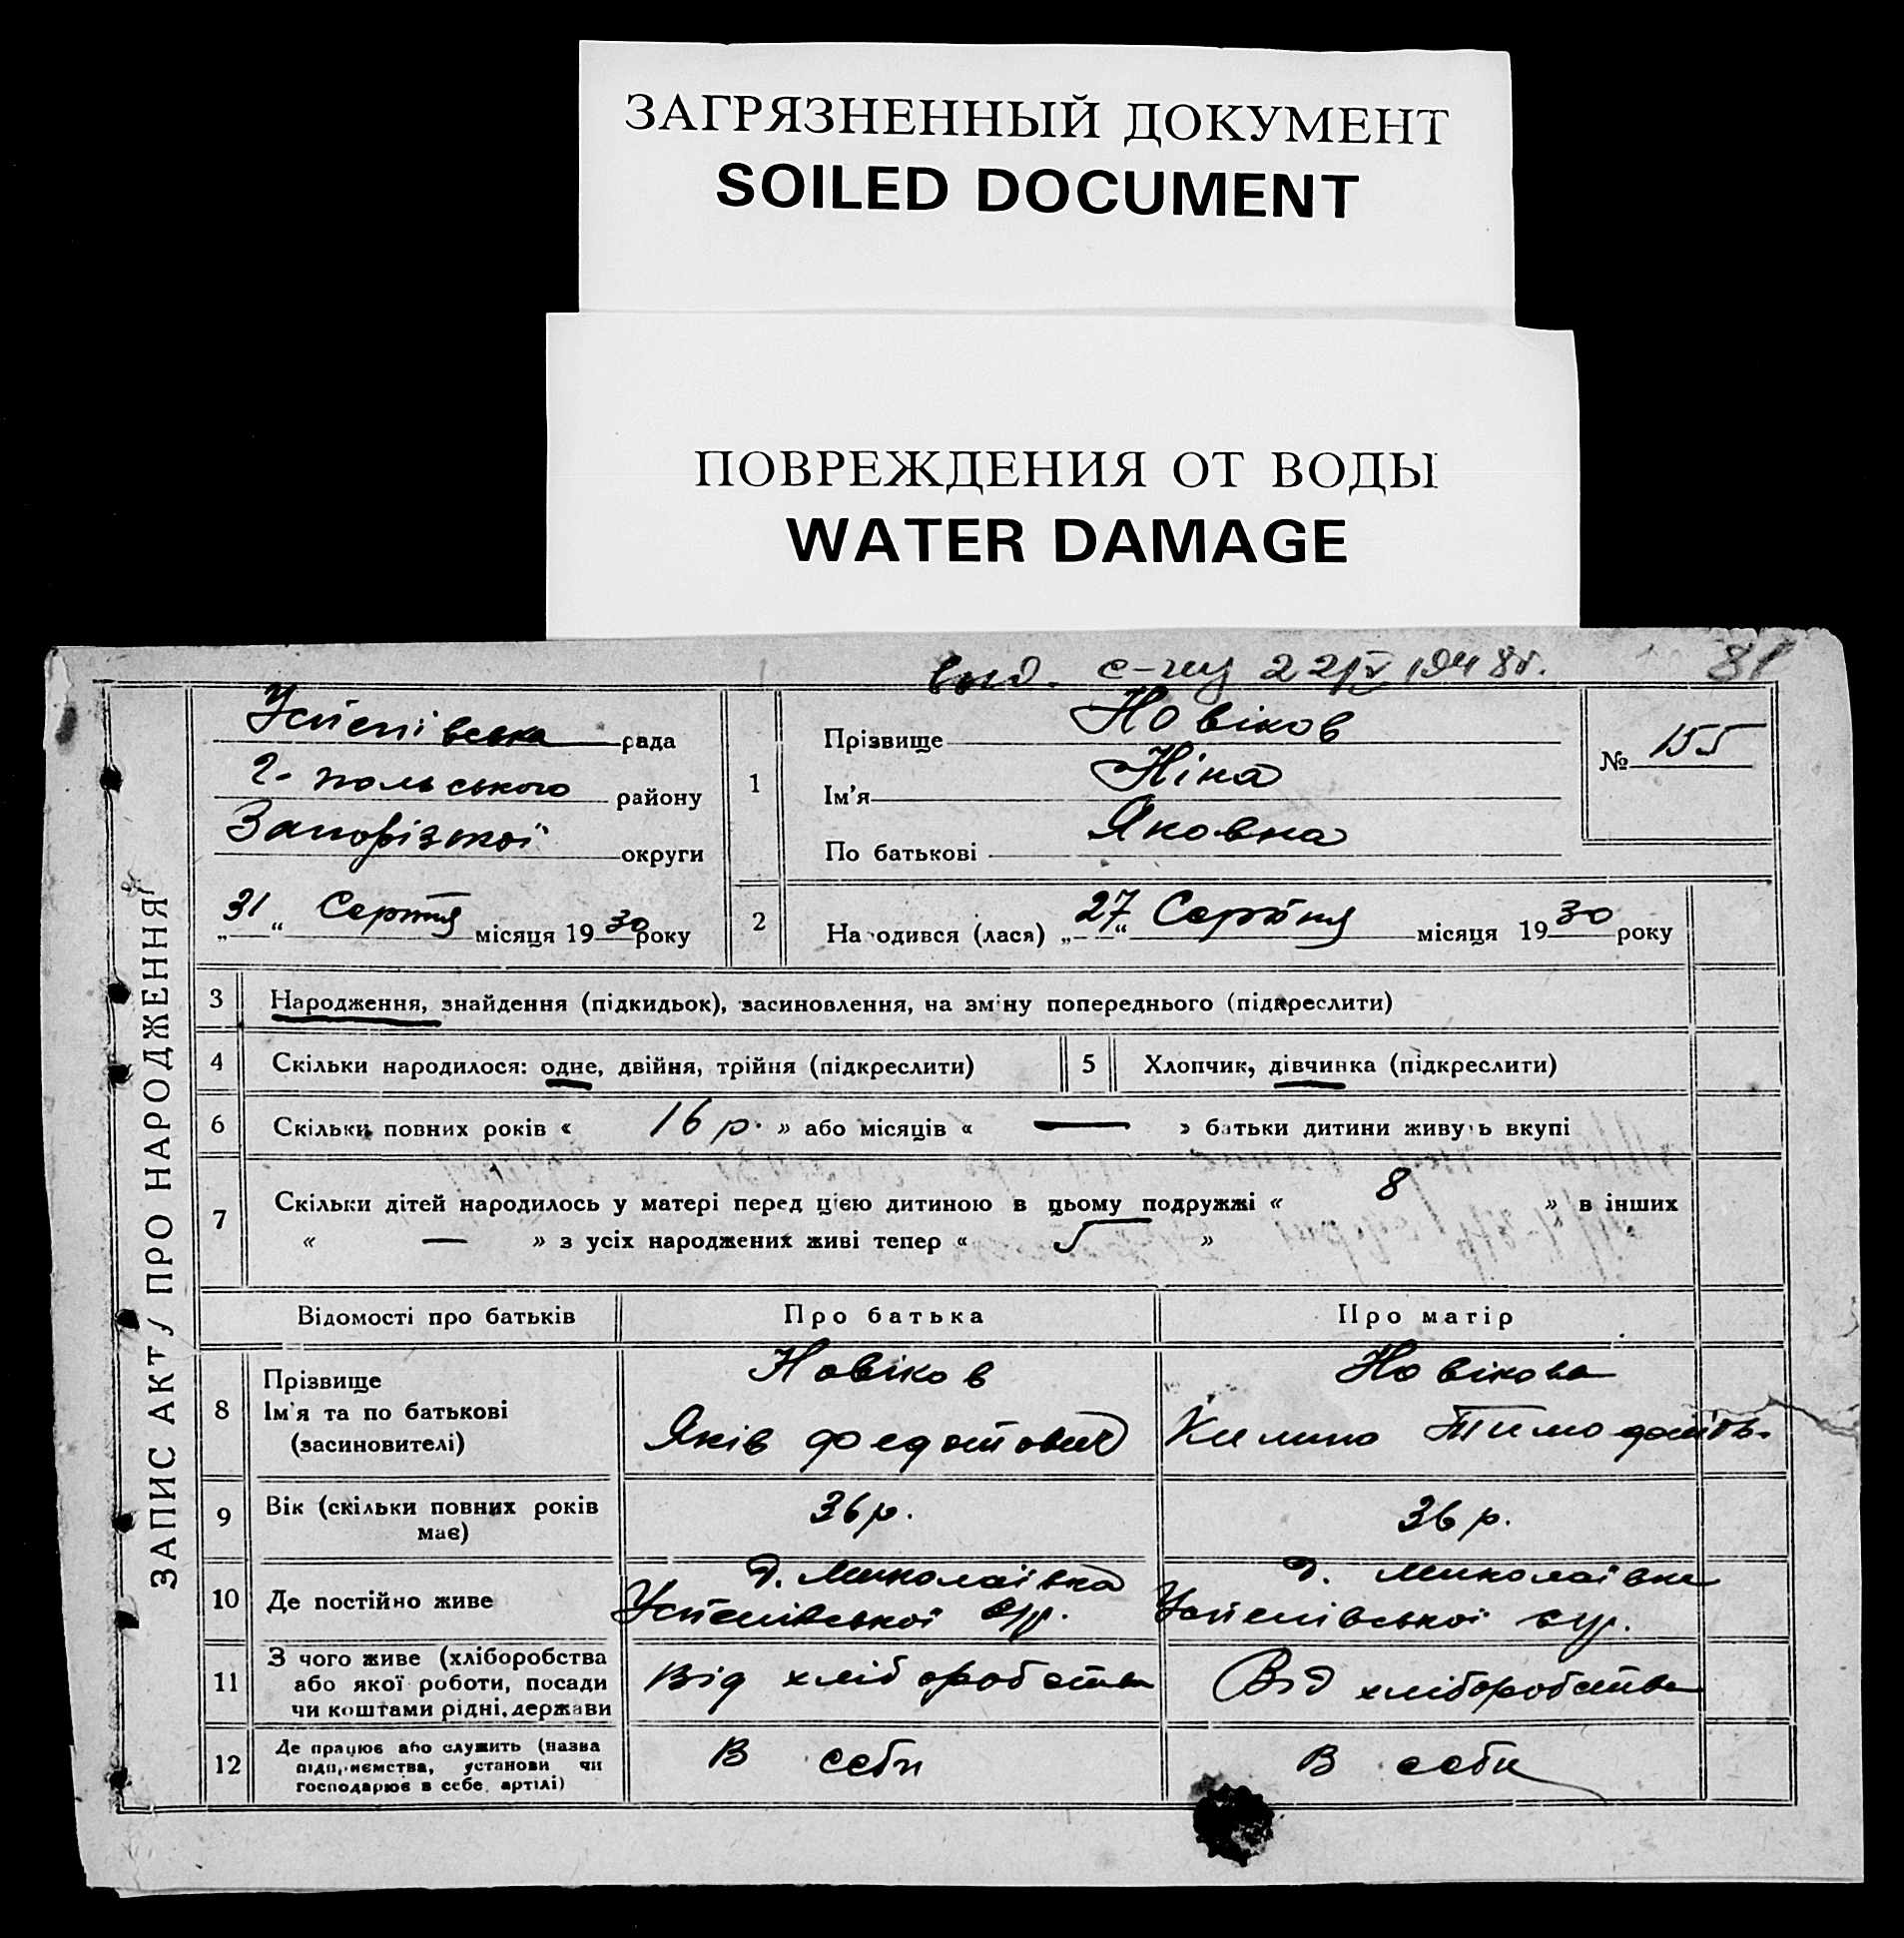 ЗАГРЯЗНЕННЫЙ ДОКУМЕНТ
SOILED DOCUMENT
ПОВРЕЖДЕНИЯ ОТ ВОДЫ
WATER DAMAGE
81
ЗАПИС АКТУ ПРО НАРОДЖЕННЯ
Успенівська рада
Г-польського району
Запорізької округи
„31“ Серпня місяця 1930 року
1
Прізвище Новіков
Ім'я Ніна
По батькові Яковна
№ 155
2 Народився (лася) „27“ Серпня місяця 1930 року
3 Народження, знайдення (підкидьок), засиновлення, на зміну попереднього (підкреслити)
4 Скільки народилося: одне, двійня, трійня (підкреслити) 5 Хлопчик, дівчинка (підкреслити)
6 Скільки повних років « 16 р. » або місяців « — » батьки дитини живуть вкупі
7 Скільки дітей народилось у матері перед цією дитиною в цьому подружжі « 8 » в інших
« — » з усіх народжених живі тепер « 5 »
Відомості про батьків Про батька Про матір
8 Прізвище
Ім'я та по батькові
(засиновителі)
Новіков
Яків Федотович
Новікова
9 Вік (скільки повних років
має)
36 р. 36 р.
10 Де постійно живе
д. Миколаївка
Успенівської с/р.
д. Миколаївка
Успенівської с/р.
11 З чого живе (хліборобства
або якої роботи, посади
чи коштами рідні, держави
Від хліборобства Від хліборобства
12 Де працює або служить (назва
підприємства, установи чи
господарює в себе, артілі)
В себи В себи